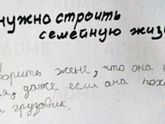 нужно строить
семейную жиз
ворить жене, что она с
я, даже если она пох
грузовик.